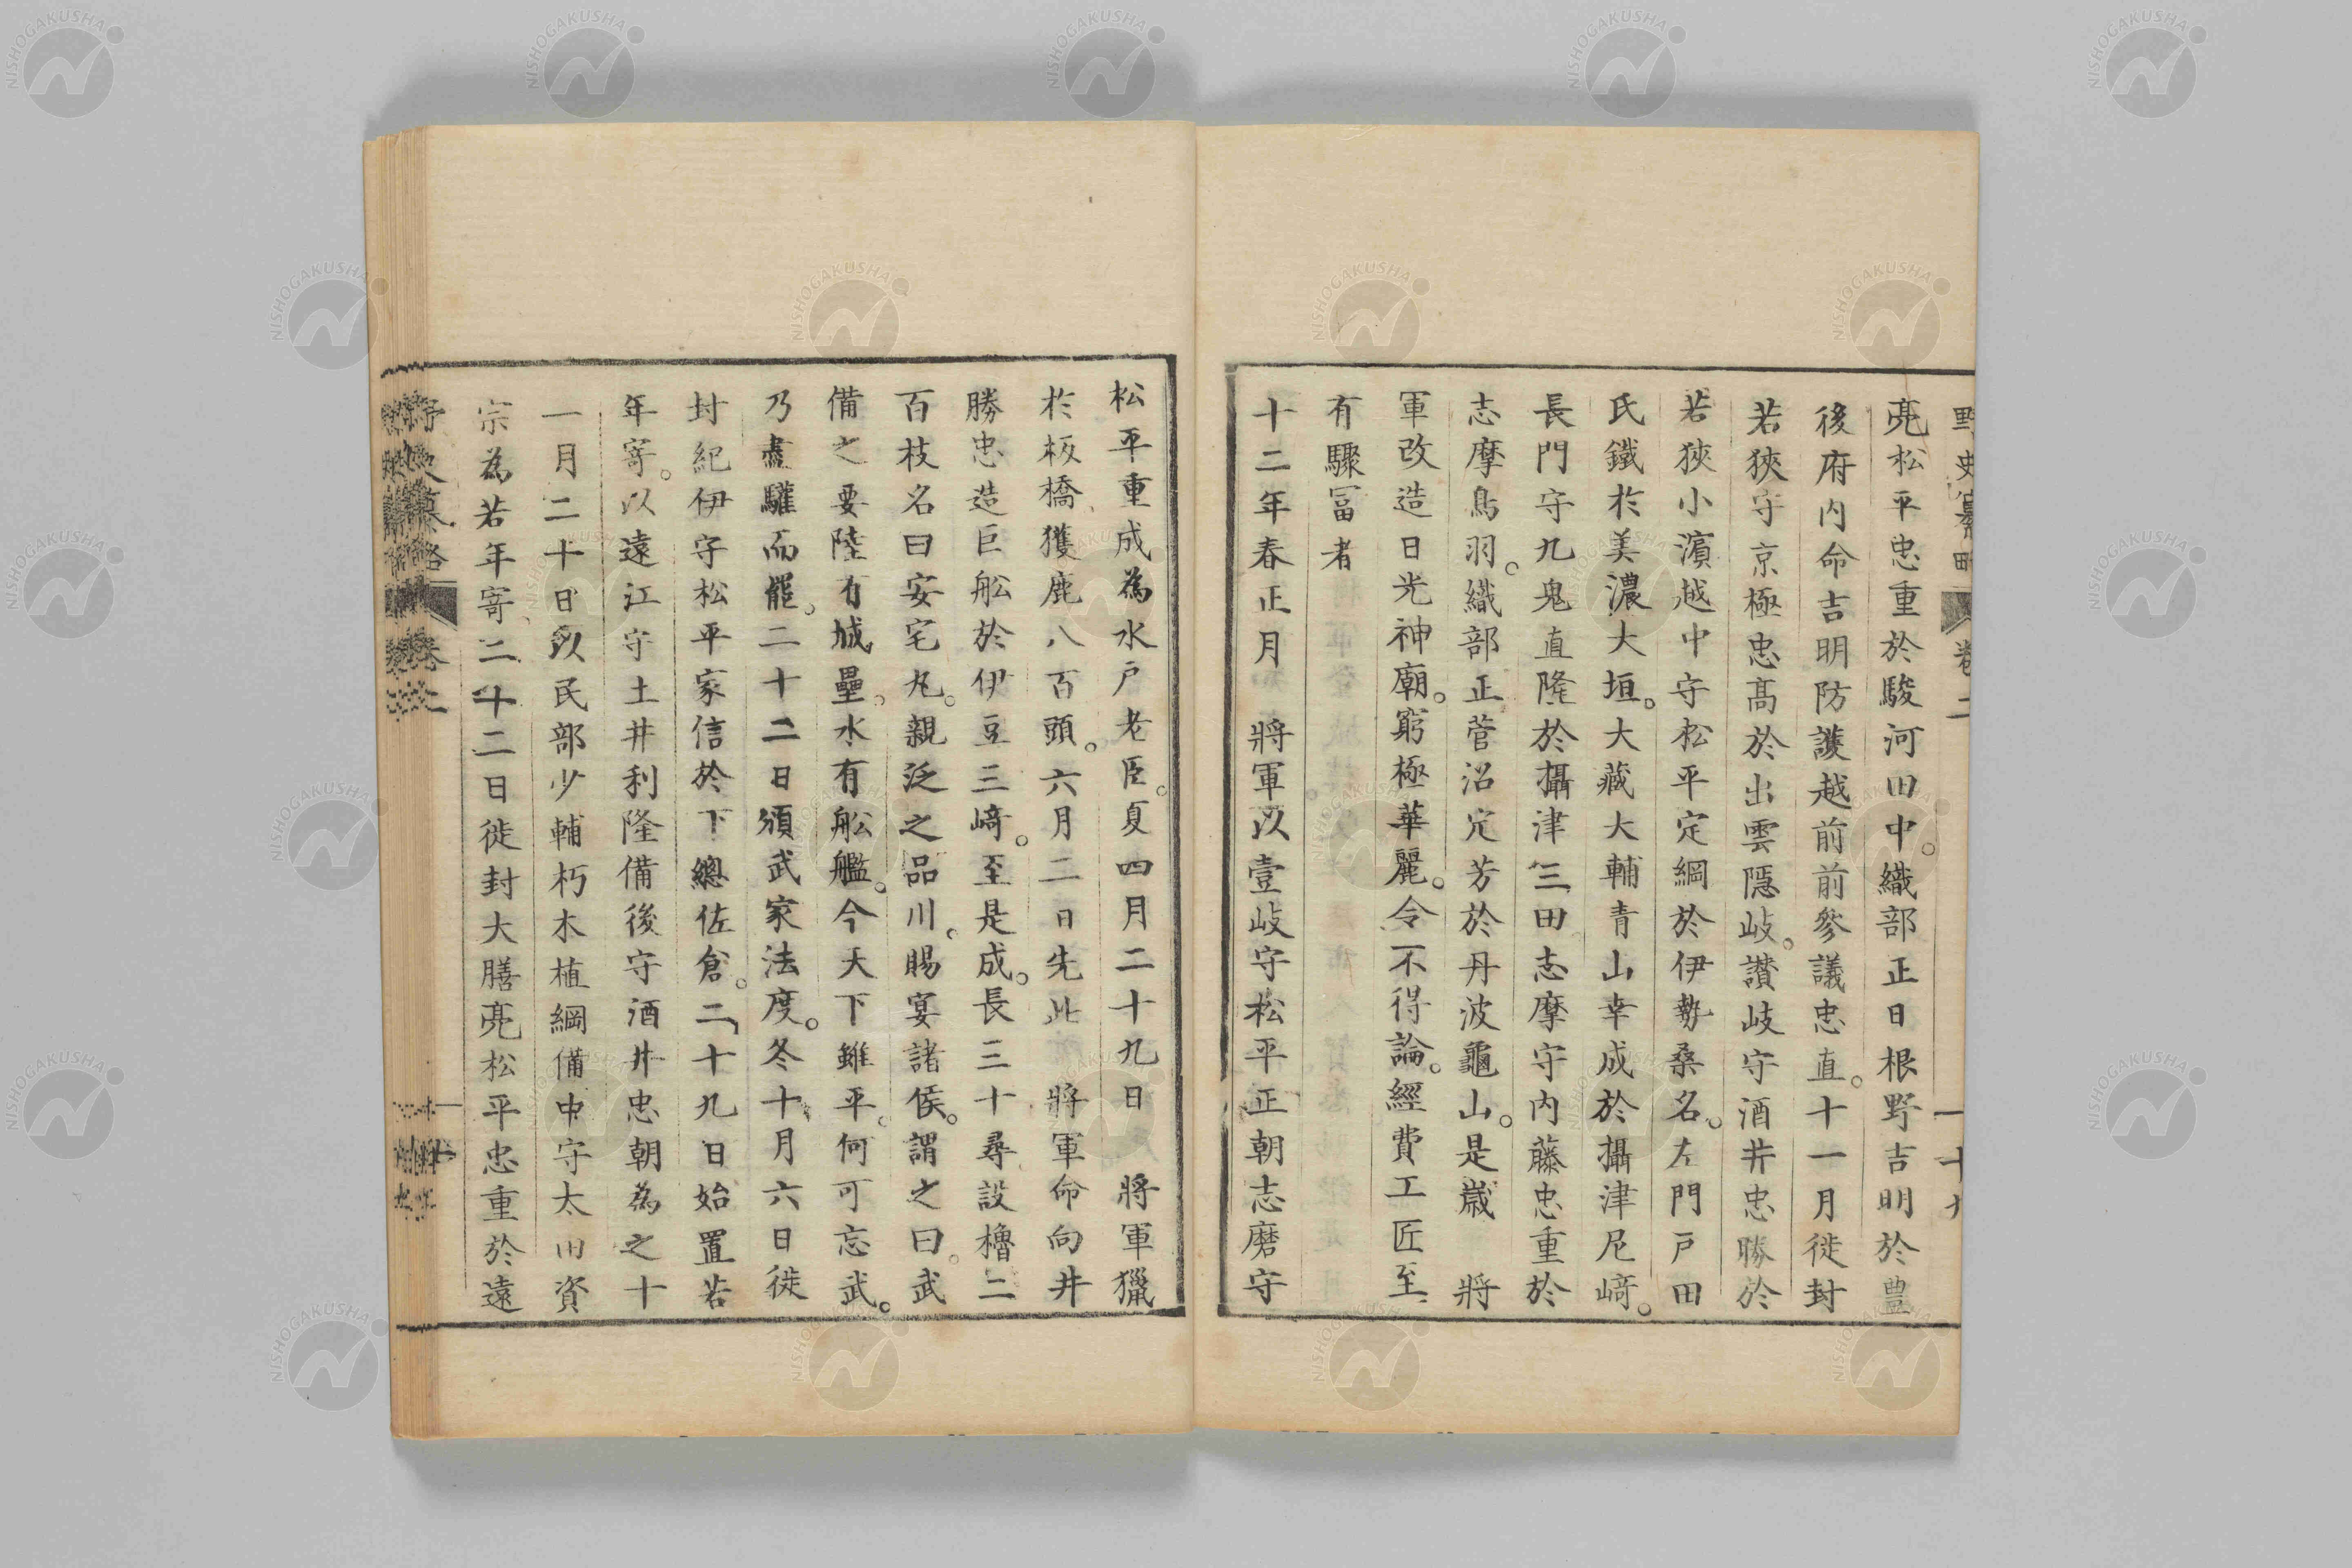 野史纂略 卷二 一 十九
亮松平忠重於駿河田中。織部正日根野吉明於豊
後府内命吉明防護越前前參議忠直。十一月徙封
若狹守京極忠高於出雲隱岐。讃岐守酒井忠勝於
若狹小濵越中守松平定綱於伊勢桑名。左門戸田
氏鐵於美濃大垣。大藏大輔青山幸成於攝津尼﨑。
長門守九鬼直隆於攝津三田志摩守内藤忠重於
志摩鳥羽。織部正菅沼定芳於丹波龜山。是歳 將
軍改造日光神廟。窮極華麗。令不得論。經費工匠至
有驟冨者
十二年春正月 將軍以壹岐守松平正朝志磨守
松平重成為水戸老臣。夏四月二十九日 將軍獵
於板橋獲鹿八百頭。六月二日先此 將軍命向井
勝忠造巨舩於伊豆三﨑。至是成。長三十尋設櫓二
百枝名曰安宅丸。親泛之品川。賜宴諸侯。謂之曰。武
備之要陸有城壘。水有舩艦。今天下雖平。何可忘武。
乃盡驩而罷。二十二日頒武家法度。冬十月六日徙
封紀伊守松平家信於下總佐倉。二十九日始置若
年寄。以遠江守土井利隆備後守酒井忠朝為之十
一月二十日以民部少輔朽木植綱備中守太田資
宗為若年寄二十二日徙封大膳亮松平忠重於遠